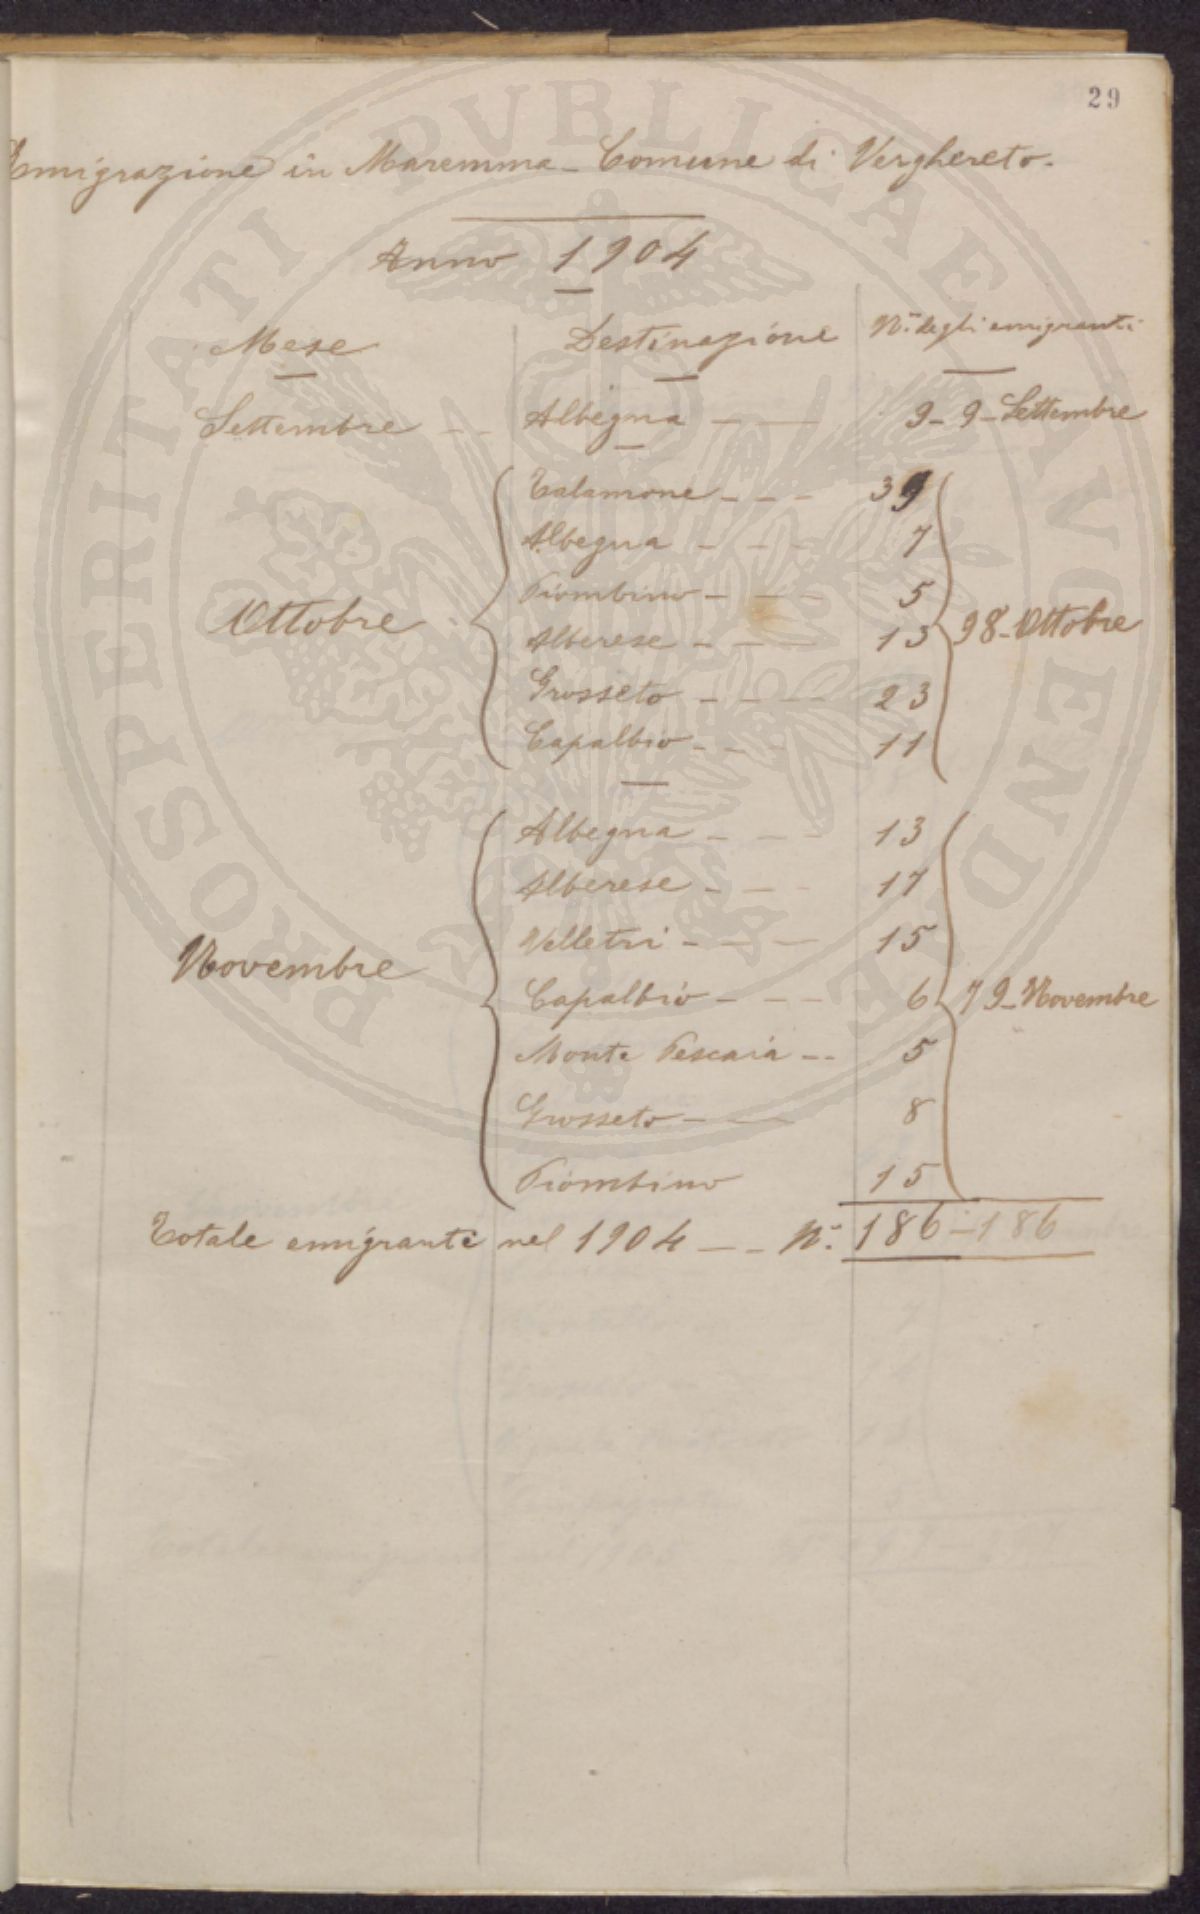 29
Emigrazione in Maremma - Comune di Verghereto.
Anno 1904
Mese Destinazione N.º degli emigranti
Settembre - - Albegna - - 9 - 9 - Settembre
Talamone - - - 39
Albegna - - - 7
Piombino - - - 5
Ottobre Alberese - - - 13 98 - Ottobre
Grosseto - - - 23
Capalbio - - - 11
Albegna - - - 13
Alberese - - - 17
Velletri - - - 15
Novembre Capalbio - - - 6 79 - Novembre
Monte Pescaia - - 5
Grosseto - - 8
Piombino 15
Totale emigranti nel 1904 - - N.º 186 - 186
PROSPERITATI PVBLICAE AVGENDAE